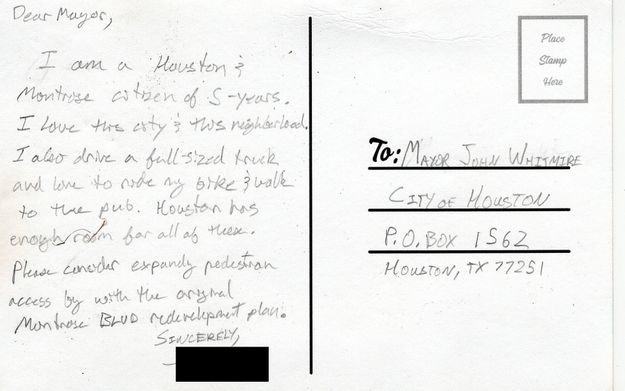 Dear Mayor,
I am a Houston &
Montrose citizen of 5-years.
I Love this city & this neighborhood.
I also drive a full-sized truck
and love to ride my bike & walk
to the pub. Houston has
enough room for all of these.
Please consider expandg pedestrian
access by with the original
Montrose BLVD redevelopment plan.
SINCERELY,
Place
Stamp
Here
To: MAYOR JOHN WHITMIRE
CITY OF HOUSTON
P.O. BOX 1562
HOUSTON, TX 77251